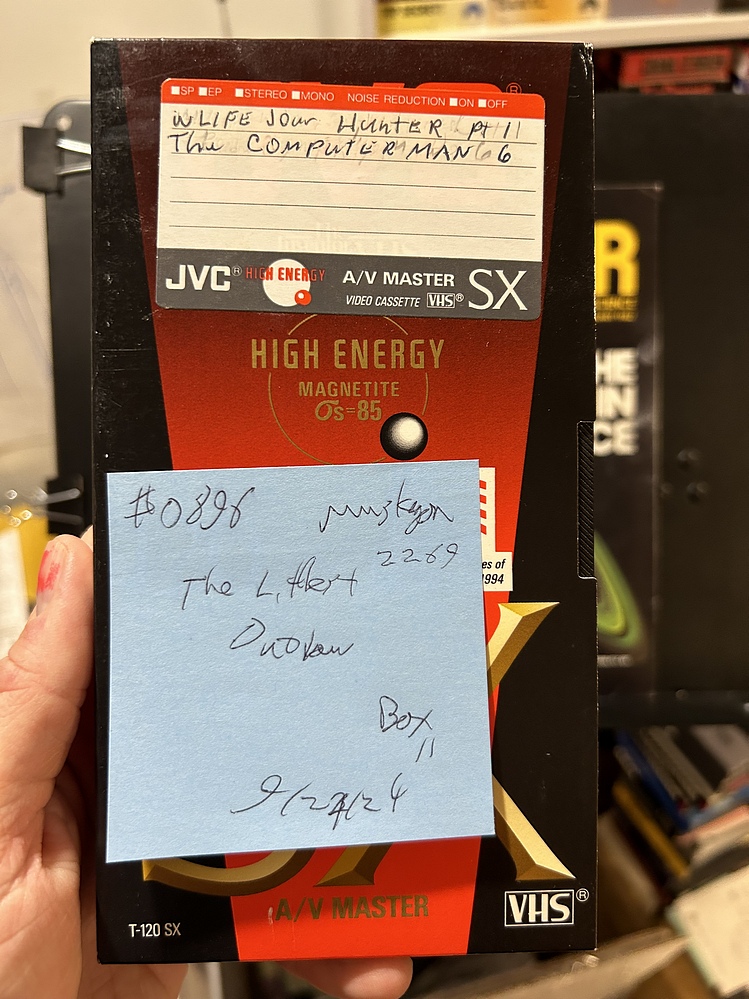 SP EP STEREO MONO NOISE REDUCTION ON OFF
WLIFE Jour HUNTER Pt 11
The COMPUTER MAN 6
JVC® HIGH ENERGY A/V MASTER SX
VIDEO CASSETTE VHS®
HIGH ENERGY
MAGNETITE
σs=85
#0896 muskgon
2269
The Littlest
Outlaw
Box
11
9/24/24
es of
1994
A/V MASTER
VHS®
T-120 SX
R
HE
IN
CE